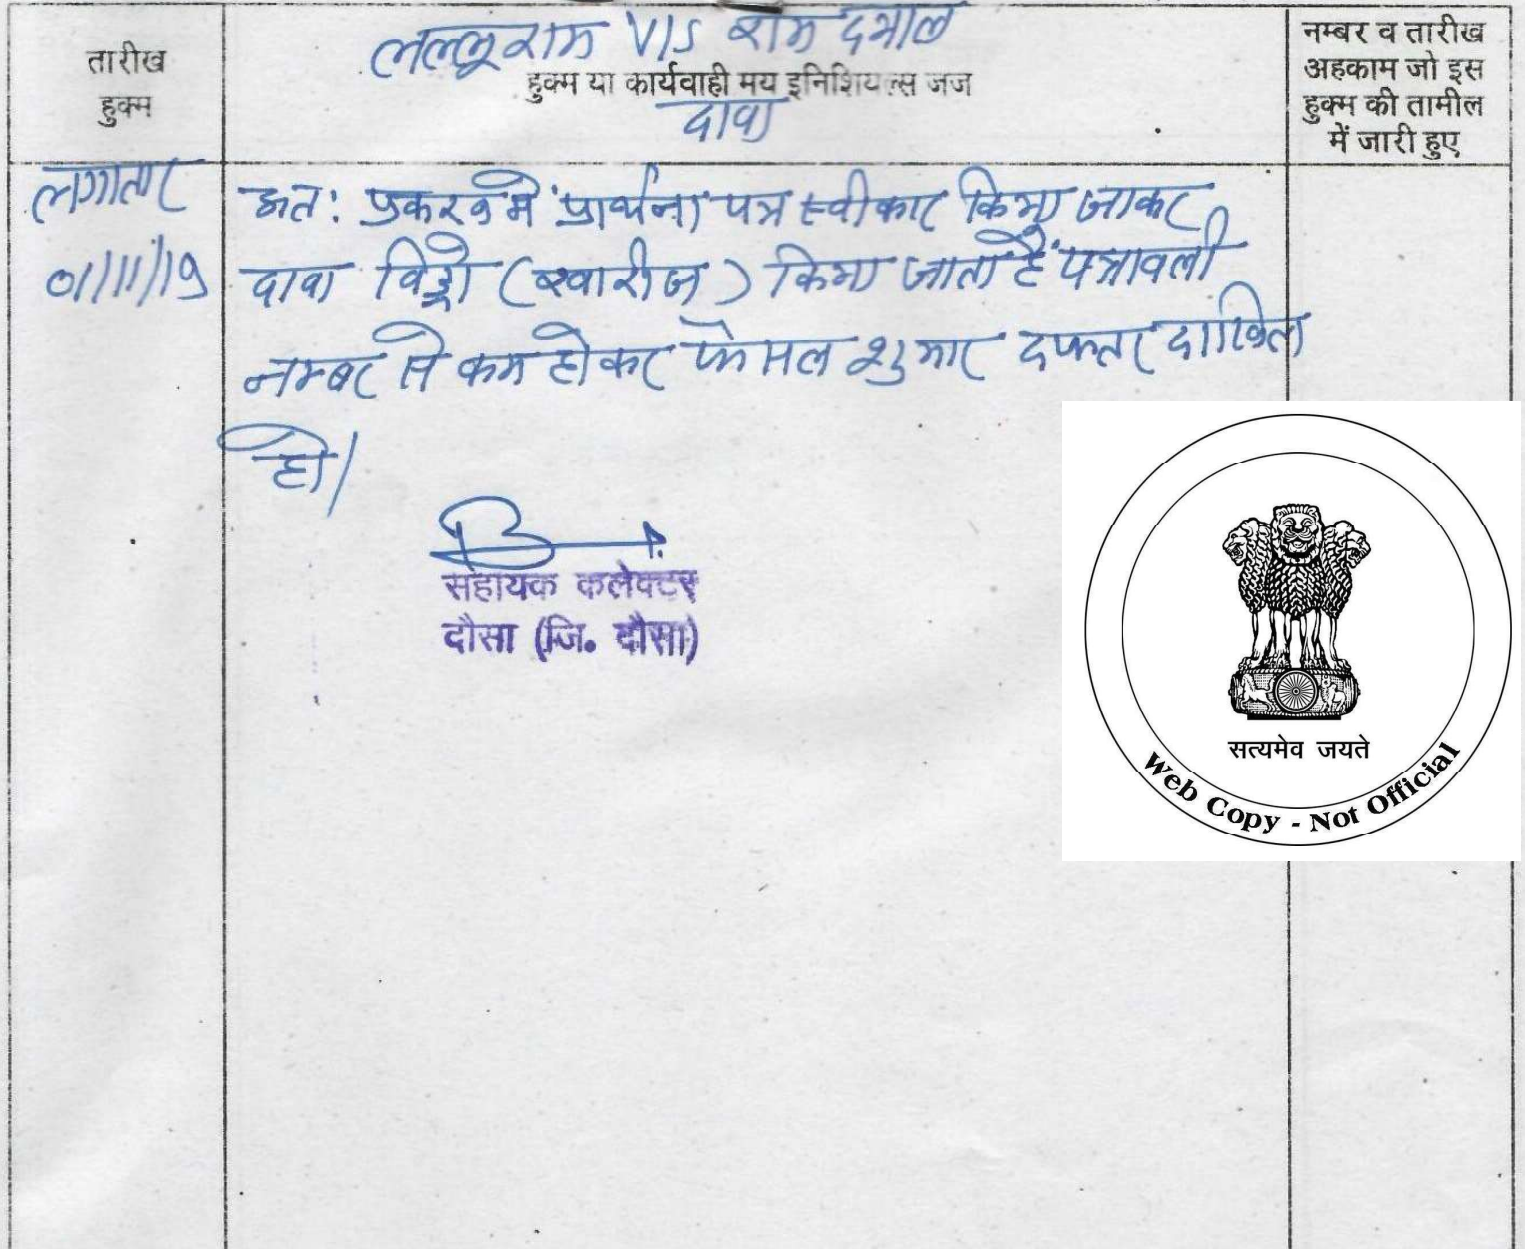 तारीख
हुक्म
लल्लूराम V/S रामदयाल
हुक्म या कार्यवाही मय इनिशियल्स जज
दावा
नम्बर व तारीख
अहकाम जो इस
हुक्म की तामील
में जारी हुए
लगातार
01/11/19
अत: प्रकरण में प्रार्थना पत्र स्वीकार किया जाकर
दावा विड्रो (खारीज) किया जाता है पत्रावली
नम्बर से कम होकर फैसल शुमार दफ्तर दाखिल
हो।
सहायक कलेक्टर
दौसा (जि. दौसा)
सत्यमेव जयते
Web Copy - Not Official